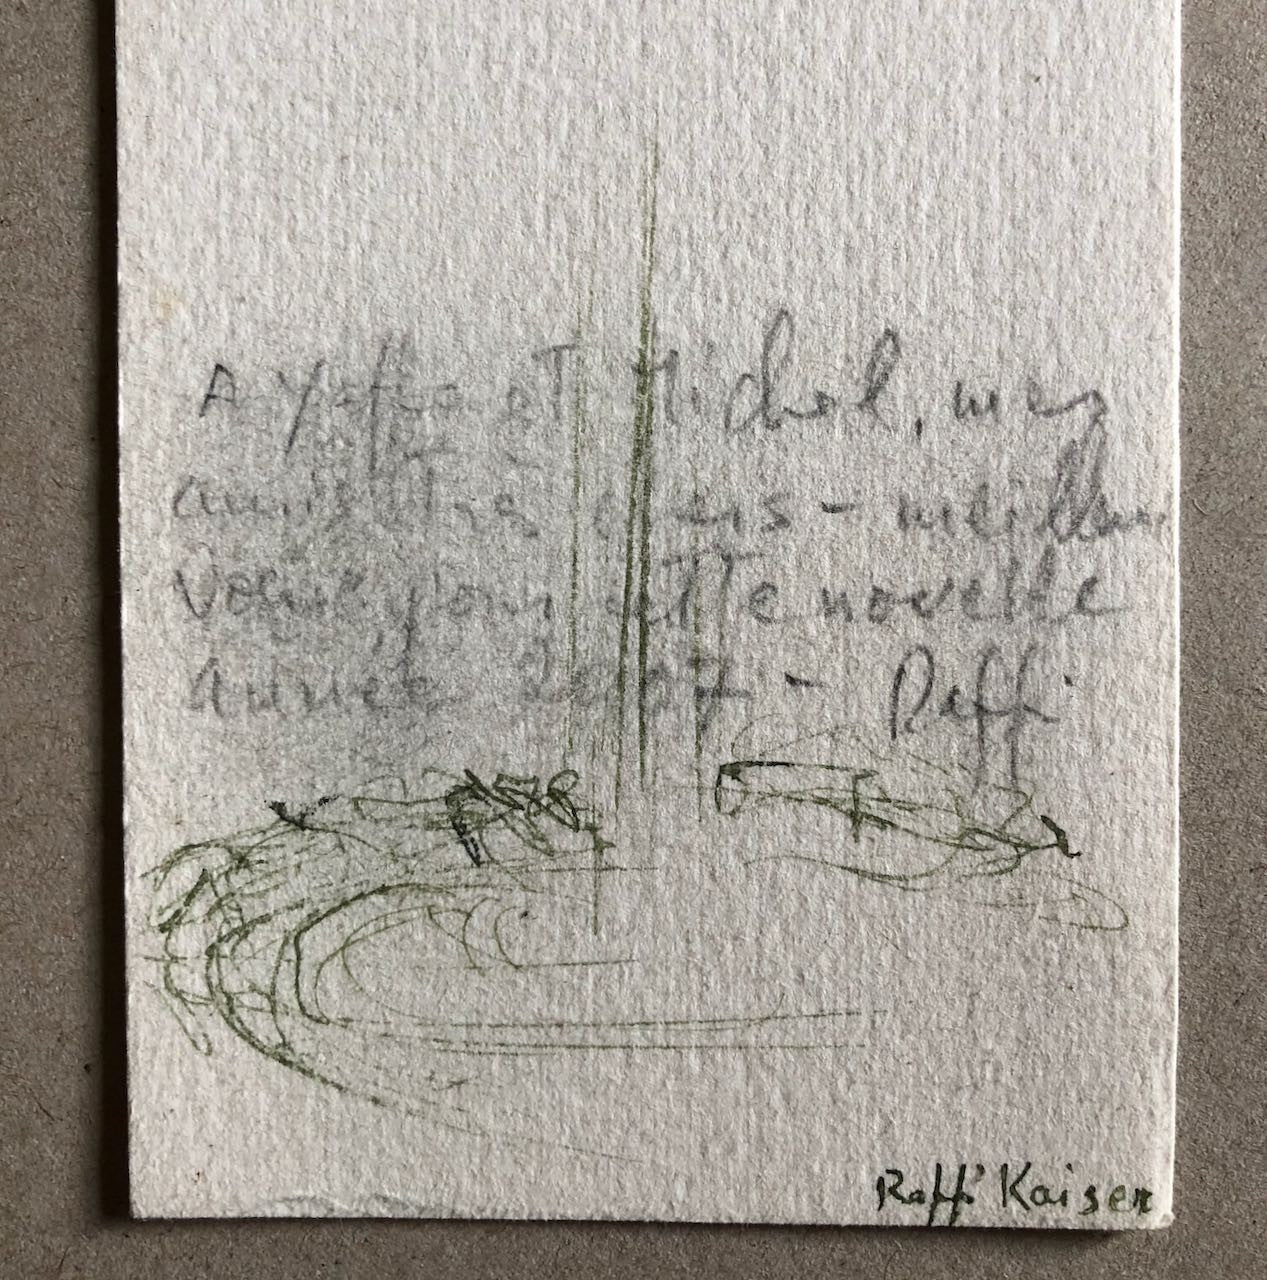 A Yaffa et Michel, mes
amis très chers - meilleur
voeux pour cette novelle
année 2007 - Raffi
Raffi Kaiser